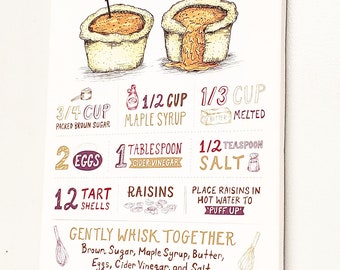 3/4 CUP
PACKED BROWN SUGAR
1/2 CUP
MAPLE SYRUP
1/3 CUP
MELTED
2 EGGS
1 TABLESPOON
CIDER VINEGAR
1/2 TEASPOON
SALT
12 TART
SHELLS
RAISINS
PLACE RAISINS IN
HOT WATER TO
"PUFF UP"
GENTLY WHISK TOGETHER
Brown Sugar, Maple Syrup, Butter,
Eggs, Cider Vinegar, and Salt